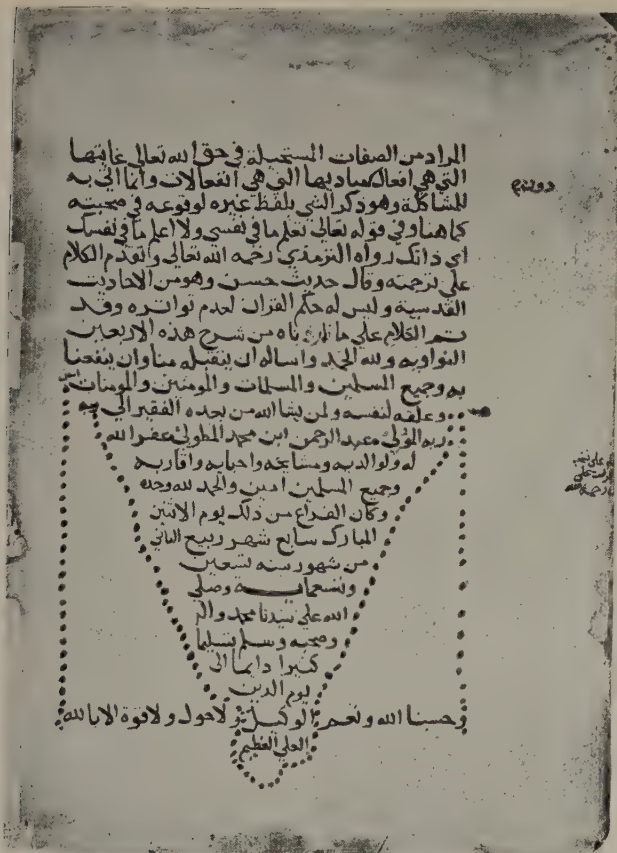 المراد من الصفات المستحيلة في حق الله تعالى غايتها
التي هي افعال كمباديها التي هي انفعالات وانما اتي به
للمشاكلة وهو ذكر الشي بلفظ غيره لوقوعه في صحبته
كما هنا وفي قوله تعالى تعلم ما في نفسي ولا اعلم ما في نفسك
اي ذاتك رواه الترمذي رحمه الله تعالى وتقدم الكلام
على ترجمته وقال حديث حسن وهو من الاحاديث
القدسية وليس له حكم القران لعدم تواتره وقد
تم الكلام على ما اردناه من شرح هذه الاربعين
النواويه ولله الحمد واساله ان يتقبله منا وان ينفعنا
به وجميع المسلمين والمسلمات والمومنين والمومنات
وعلقه لنفسه ولمن يشا الله من بعده الفقير الى
ربه عبد الرحمن ابن محمد غفر الله
له ولوالديه ومشايخه واحبابه واقاربه
وجميع المسلمين امين والحمد لله وحده
وكان الفراغ من ذلك يوم الاثنين
المبارك سابع شهر ربيع الثاني
من شهور سنه تسعين
وتسعمايه وصلى
الله على سيدنا محمد واله
وصحبه وسلم تسليما
كثيرا دايما الى
يوم الدين
وحسبنا الله ونعم الوكيل لا حول ولا قوة الا بالله
العلي العظيم